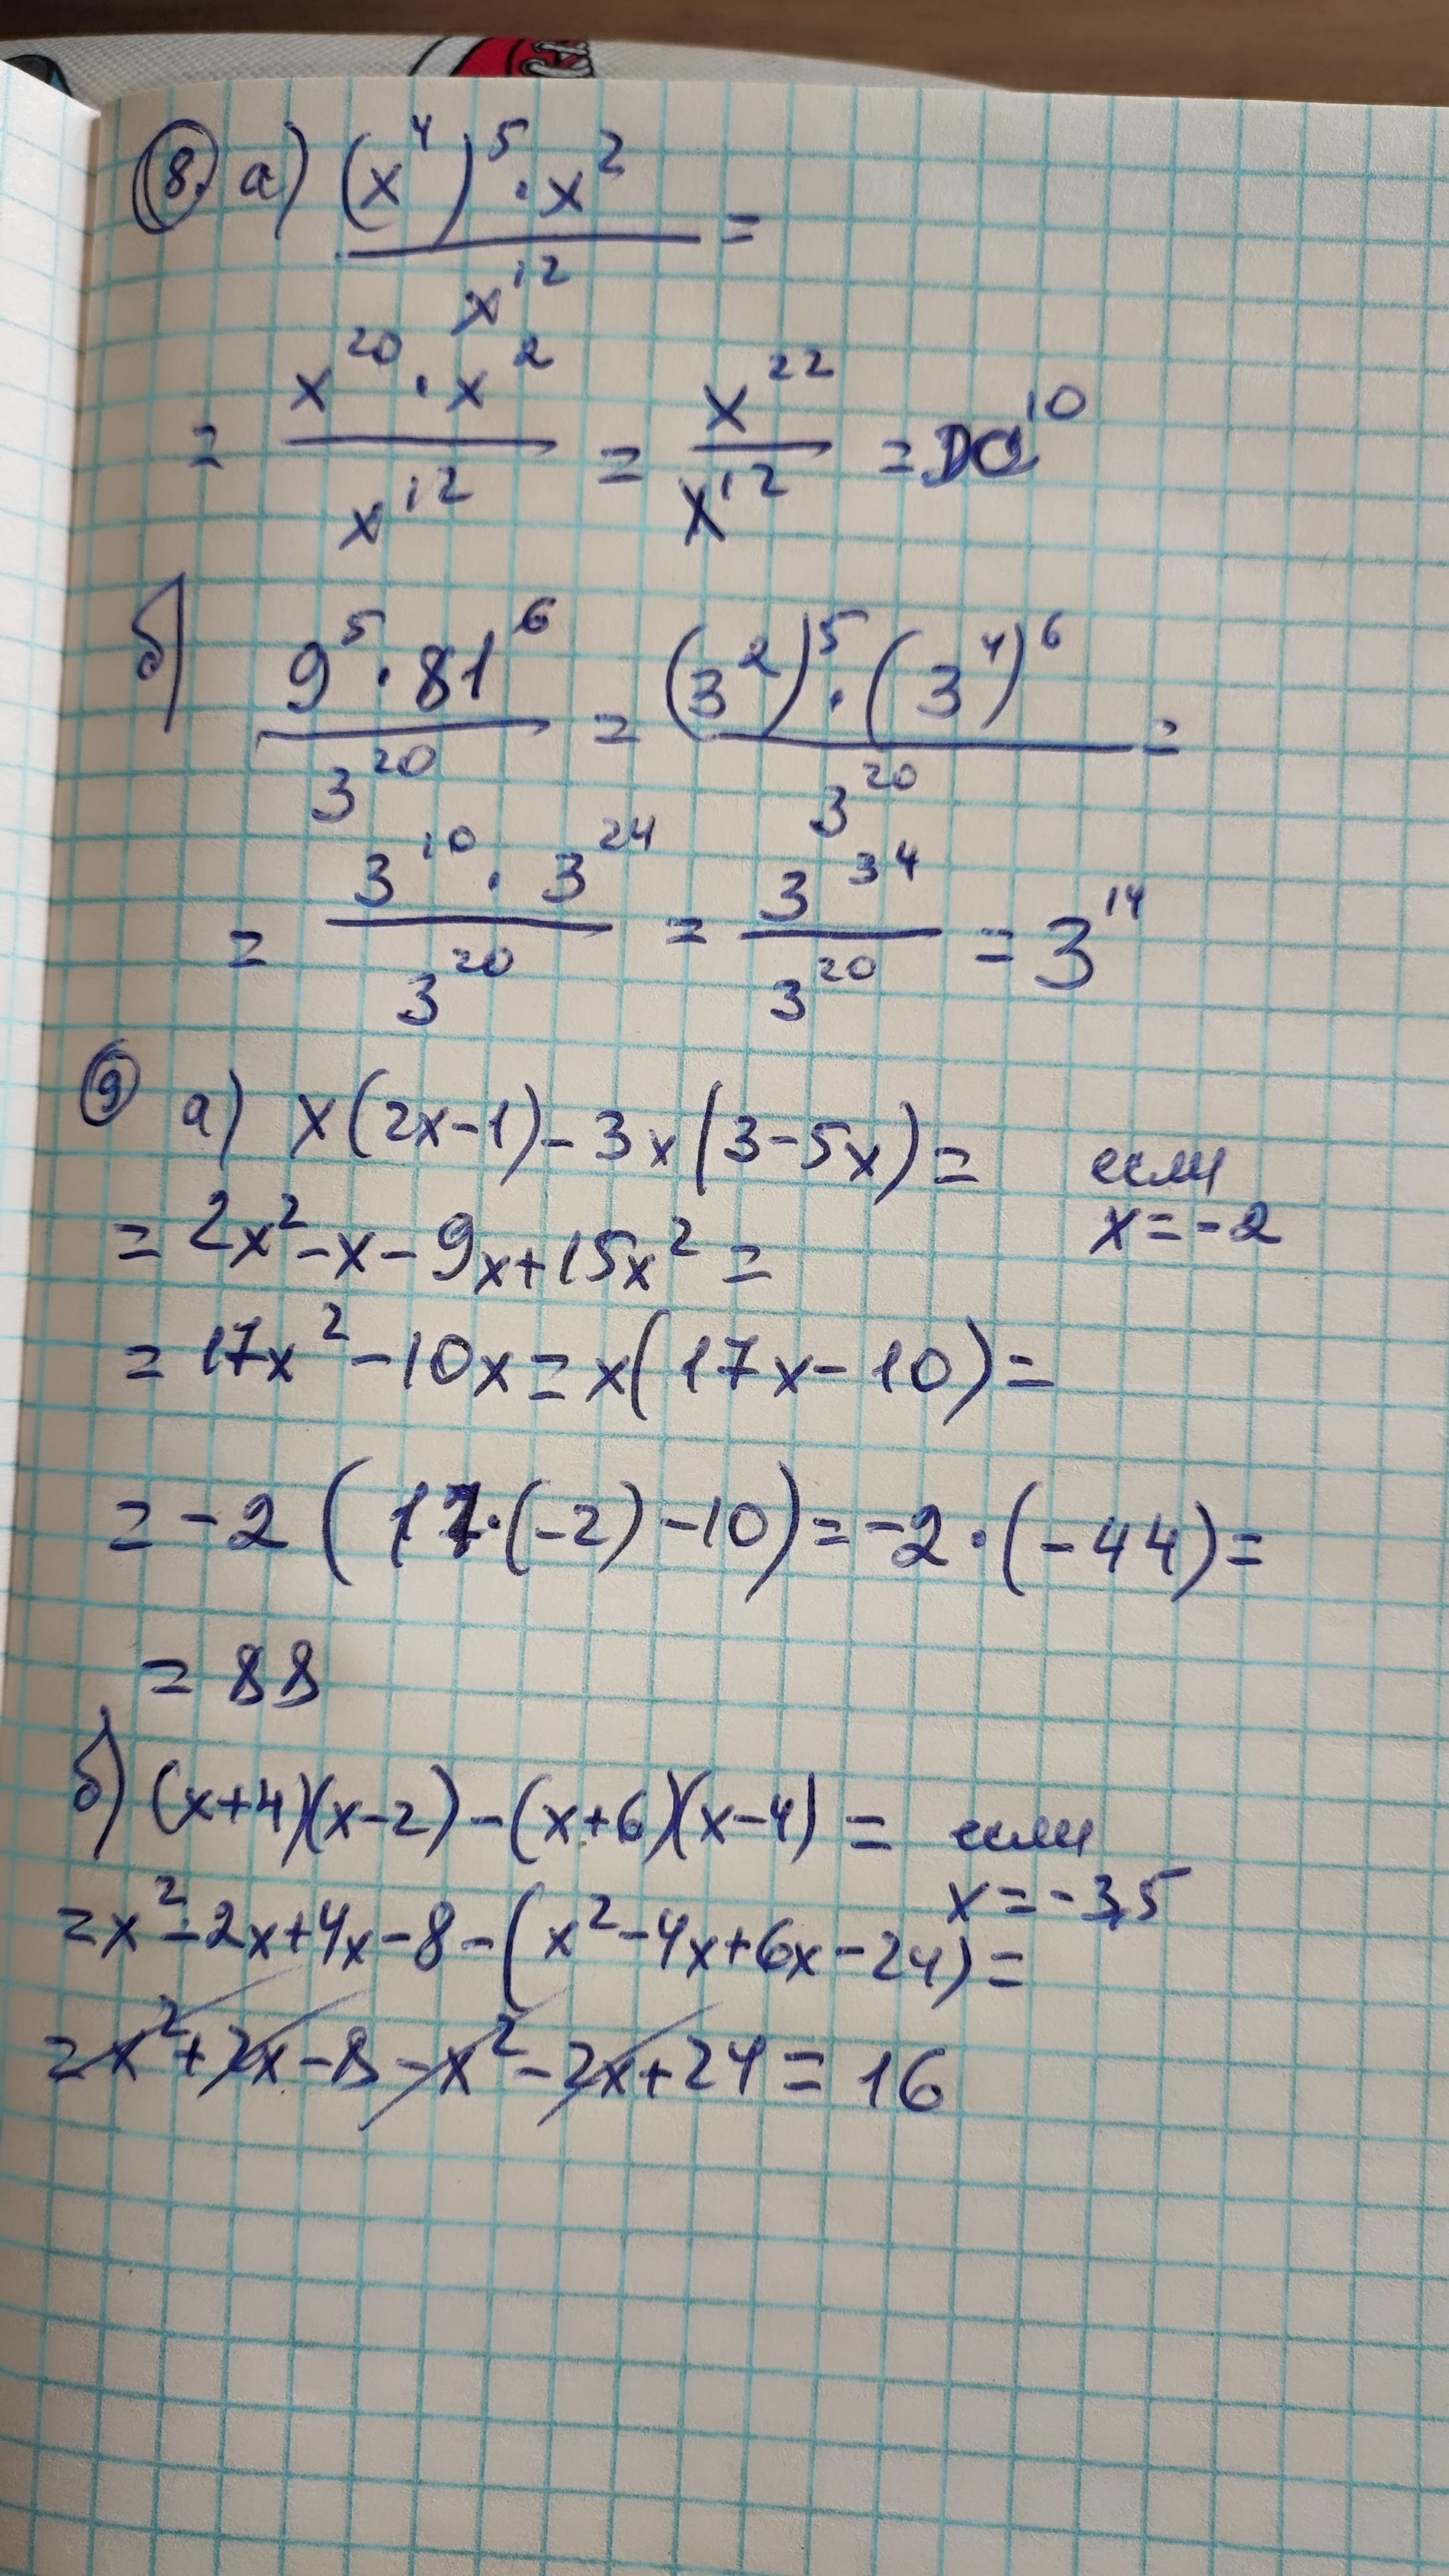 8. а) (x⁴)⁵ · x² / x¹² =
= x²⁰ · x² / x¹² = x²² / x¹² = x¹⁰
б) 9⁵ · 81⁶ / 3²⁰ = (3²)⁵ · (3⁴)⁶ / 3²⁰ =
= 3¹⁰ · 3²⁴ / 3²⁰ = 3³⁴ / 3²⁰ = 3¹⁴
9 а) x(2x-1)-3x(3-5x)= если
x=-2
= 2x²-x-9x+15x² =
= 17x²-10x = x(17x-10)=
= -2(17·(-2)-10)=-2·(-44)=
= 88
б) (x+4)(x-2)-(x+6)(x-4)= если
x=-3,5
=x²-2x+4x-8-(x²-4x+6x-24)=
=x²+2x-8-x²-2x+24=16